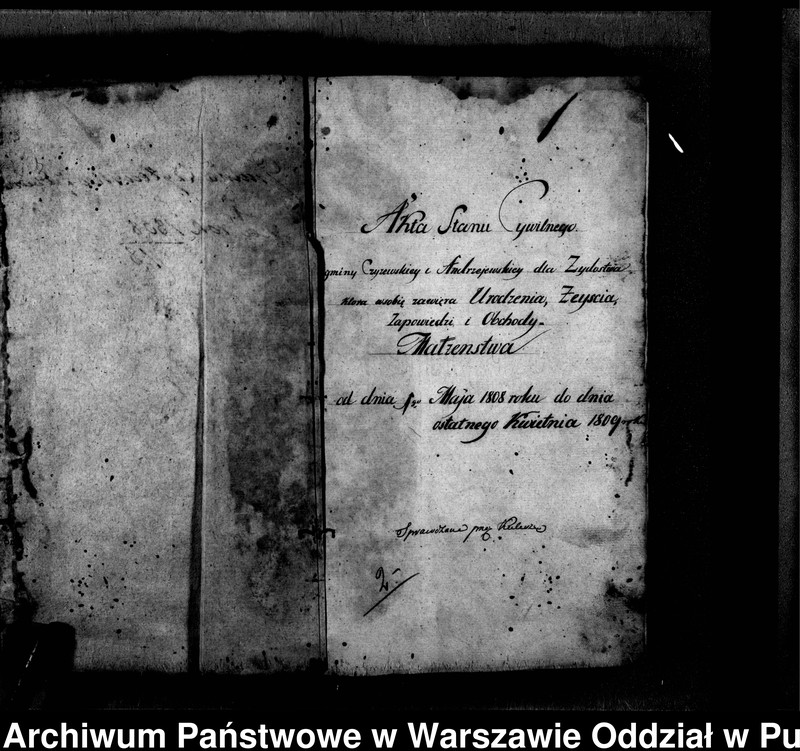 Akta Stanu Cywilnego.
gminy Czyzewskiey i Andrzejewskiey dla Zydostwa
ktora wsobie zawiera Urodzenia, Zeyscia,
Zapowiedzi i Obchody
Małzenstwa
od dnia 1go Maja 1808 roku do dnia
ostatnego Kwietnia 1809
Sprawdzone przez
2
Archiwum Państwowe w Warszawie Oddział w Pu